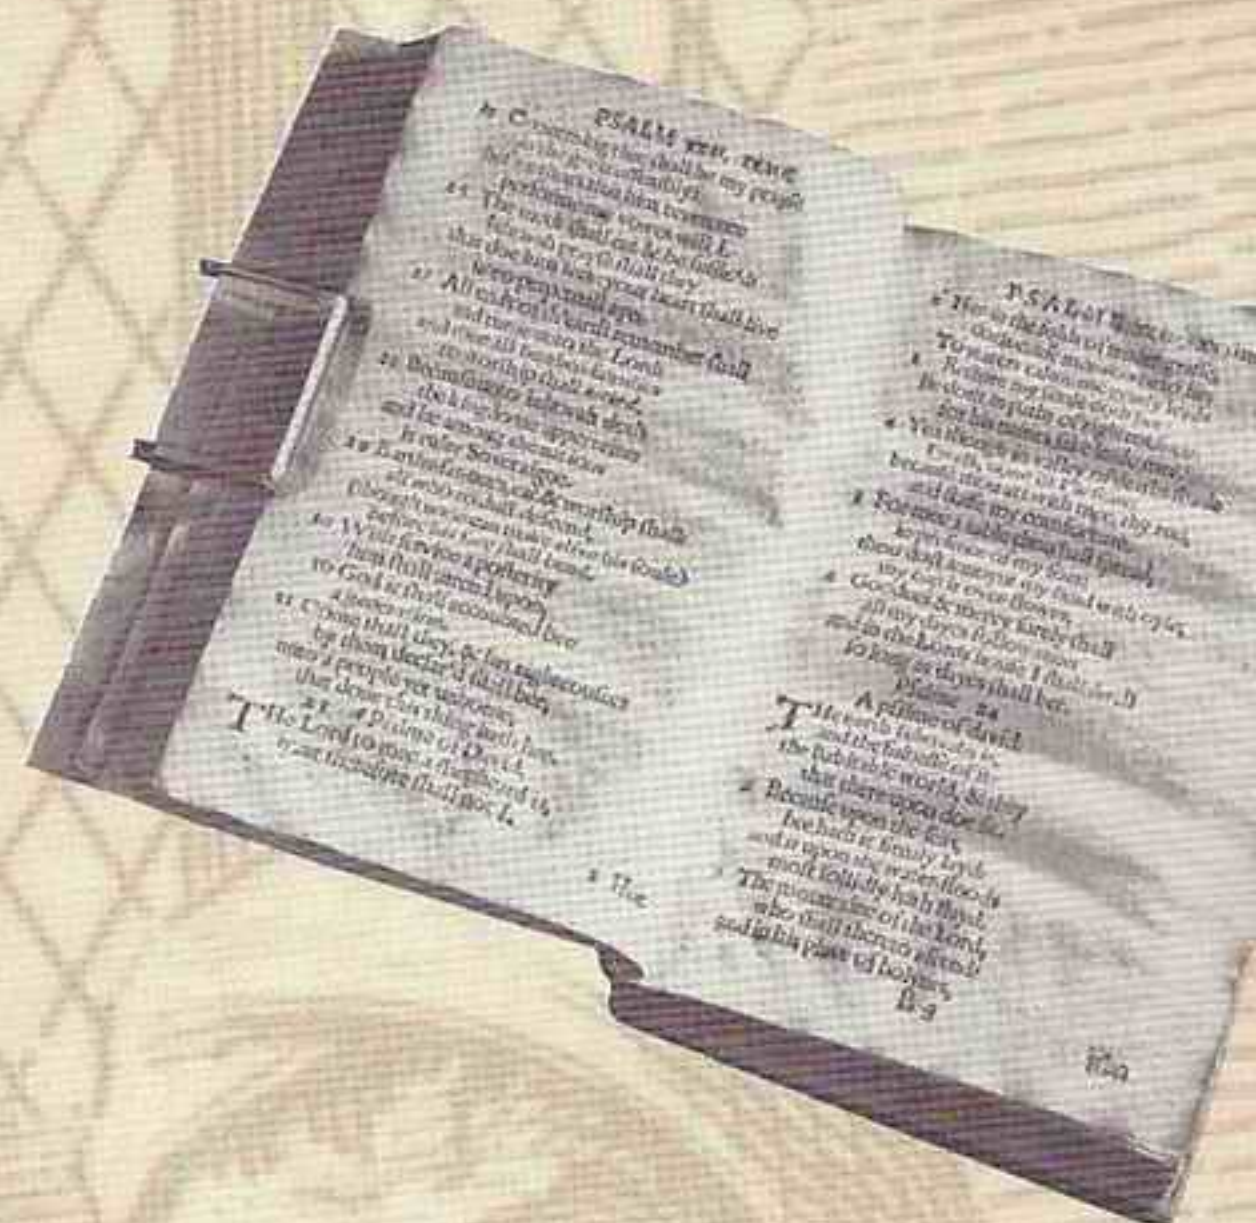 PSALM
Concerning thee shall be my prayse
in the great assembly
before them that him reverence
performe my vowes will I.
The meek shall eat & be suffic'd:
Iehovah prayse shall they
that doe him seek: your heart shall live
unto perpetuall aye.
27 All ends of th'earth remember shall
and turne unto the Lord:
and thee all heathen families
to worship shall accord.
28 Because unto Iehovah doth
the kingdome appertaine:
and he among the nations
is ruler Soveraigne.
29 eat & worship shall
all who to dust descend,
(though none can make alive his soule)
before his face shall bend.
30 With service a posterity
him shall attend upon;
to God it shall accounted bee
a generation.
31 Come shall they, & his righteousnes
by them declar'd shall bee,
unto a people yet unborne,
that done this thing hath hee.
23 A Psalme of David.
The Lord to mee a shepheard is,
want therefore shall not I.
2 Hee
PSALM
2 Hee in the folds of
doth cause mee downe to lie:
To waters calme
3 Restore my soule doth
he doth in paths of
for his names sake leade mee.
4 Yea though in valley of deaths shade
because thou art with mee, thy rod,
and staffe my comfort are.
5 For mee a table thou hast spread,
in presence of my foes:
thou dost annoynt my head with oyle,
my cup it over-flowes.
6 Goodnes & mercy surely shall
all my dayes follow mee:
and in the Lords house I shall dwell
so long as dayes shall bee.
Psalme 24
A psalme of david.
The earth
and the fulnesse of it:
the habitable world, & they
that there upon doe
2 Because upon the seas,
hee hath it firmly layd:
and it upon the water-floods
most sollidly hath stayd.
The mountaine of the Lord,
who shall thereto ascend?
and in his place of holynes,